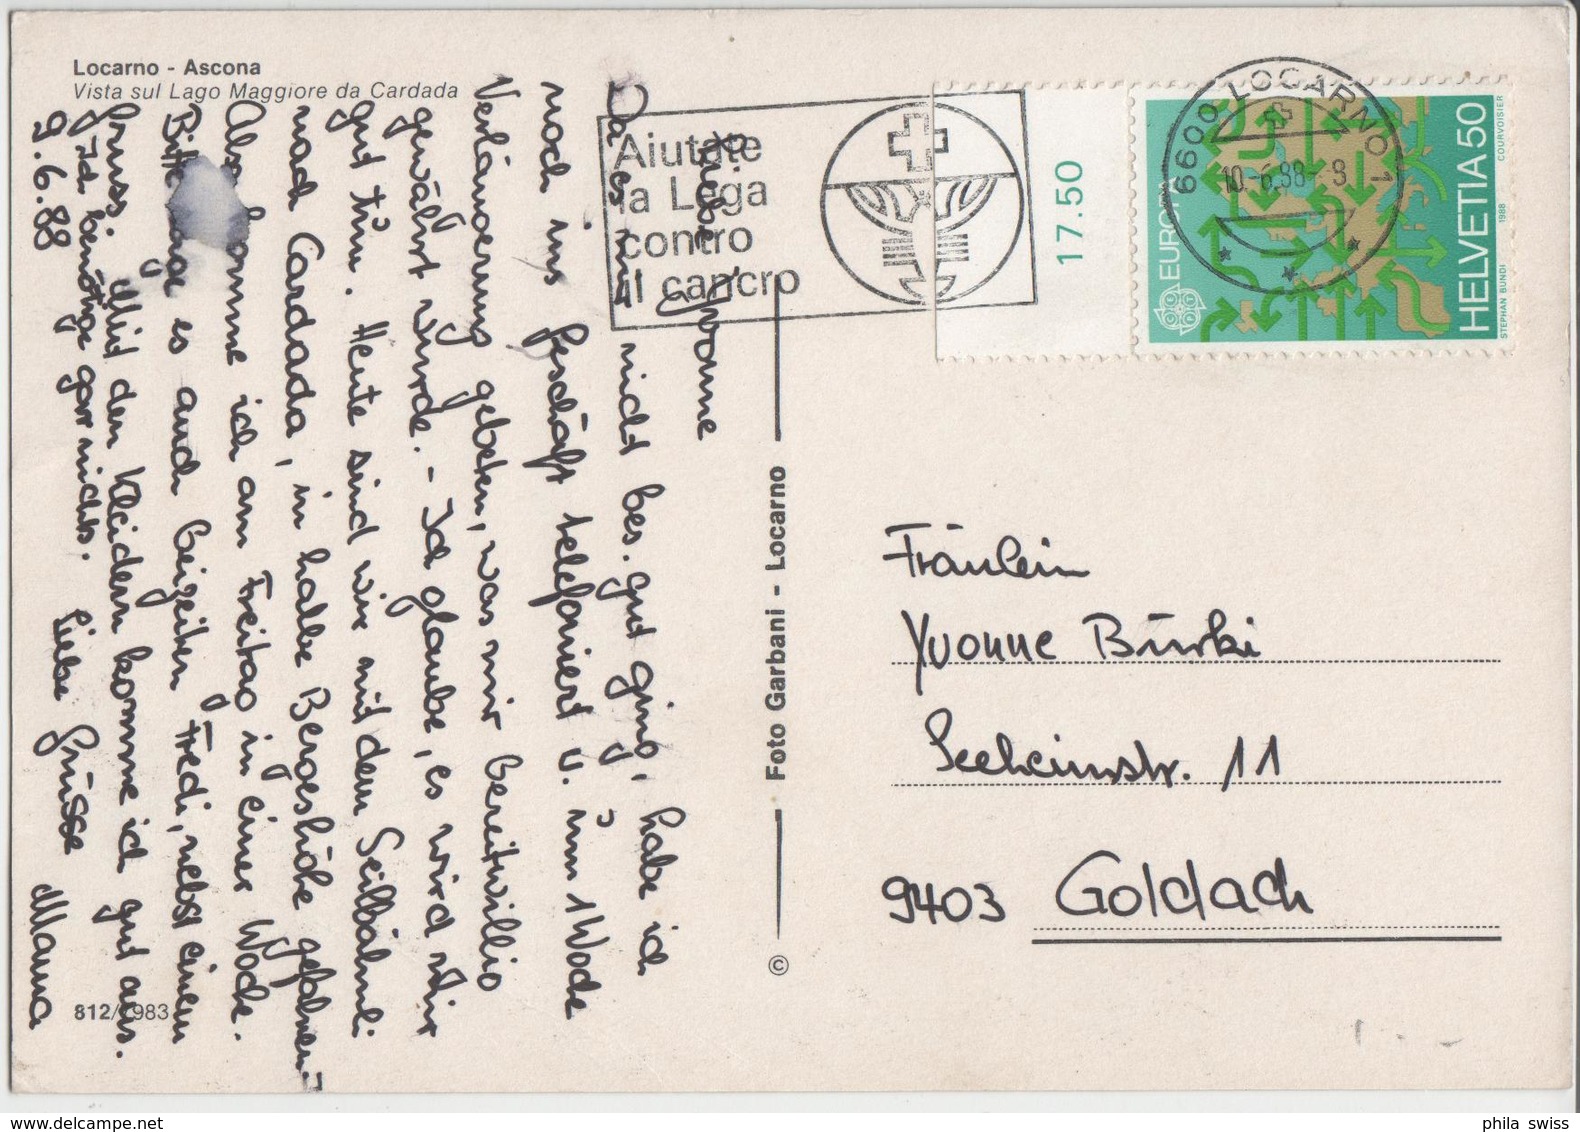 Locarno - Ascona
Vista sul Lago Maggiore da Cardada
Liebe Yvonne
Da es mir nicht bes. gut ging, habe ich
noch ins Geschäft telefoniert u. um 1 Woche
Verlängerung gebeten, was mir bereitwillig
gewährt wurde. - Ich glaube, es wird mir
gut tun. Heute sind wir mit dem Seilbähnli
nach Cardada, in halbe Bergeshöhe gefahren.
Also komme ich am Freitag in einer Woche.
Bitte sage es auch beizeiten Fredi, nebst einem
Gruss. Mit den Kleidern komme ich gut aus.
Ich benötige gar nichts.
Liebe Grüsse Mama
9.6.88
812/1983
Foto Garbani - Locarno
©
Aiutate
la Lega
contro
il cancro
17.50
6600 LOCARNO 1
10.-6.88-.8
EUROPA
CEPT
HELVETIA 50
STEPHAN BUNDI 1988 COURVOISIER
Fräulein
Yvonne Bürki
Seeheimstr. 11
9403 Goldach
phila swiss